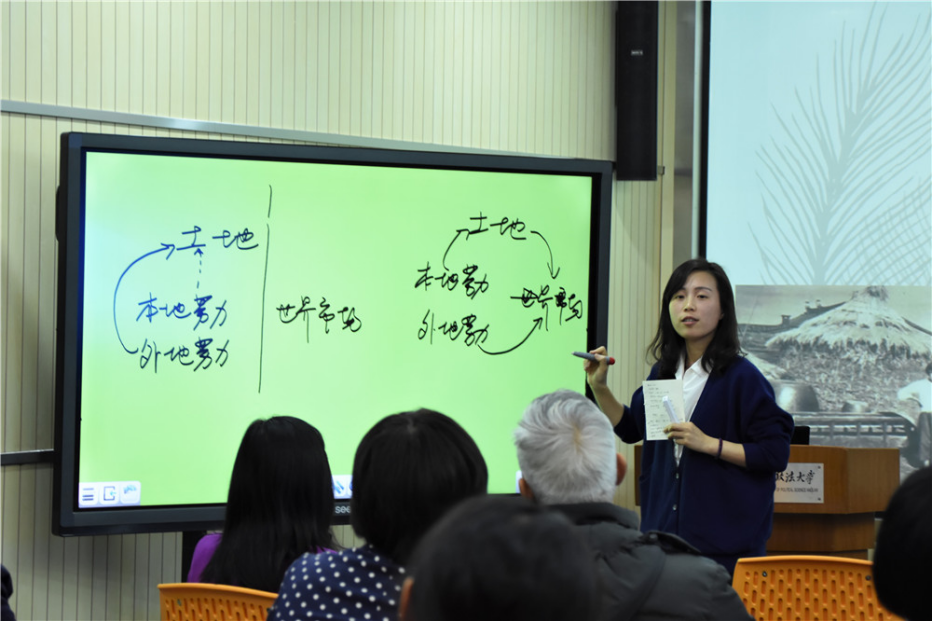 土地
本地劳力
外地劳力
世界市场
土地
本地劳力
外地劳力
世界市场
see
政法大学